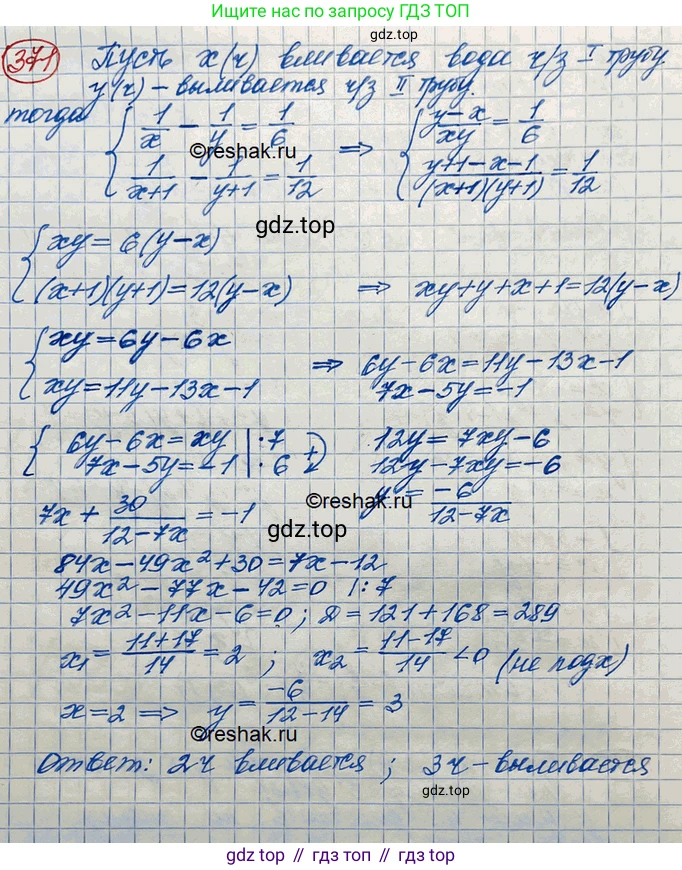 Ищите нас по запросу ГДЗ ТОП
gdz.top
371 Пусть x(ч) вливается вода ч/з I трубу
y(ч) – выливается ч/з II трубу
тогда { 1/x − 1/y = 1/6 ⇒ { (y−x)/xy = 1/6
1/(x+1) − 1/(y+1) = 1/12 (y+1−x−1)/((x+1)(y+1)) = 1/12
©reshak.ru
gdz.top
{ xy = 6(y−x)
(x+1)(y+1) = 12(y−x) ⇒ xy+y+x+1=12(y−x)
{ xy = 6y−6x ⇒ 6y−6x=11y−13x−1
xy = 11y−13x−1 7x−5y=−1
{ 6y−6x=xy |·7 (+) 12y=7xy−6
7x−5y=−1 |·6 12y−7xy=−6
©reshak.ru
y = −6/(12−7x)
7x + 30/(12−7x) = −1
gdz.top
84x−49x²+30=7x−12
49x²−77x−42=0 |:7
7x²−11x−6=0 ; D=121+168=289
x₁ = (11+17)/14 = 2 ; x₂ = (11−17)/14 <0 (не подх)
x=2 ⇒ y = −6/(12−14) = 3
©reshak.ru
Ответ: 2ч вливается ; 3ч – выливается
gdz.top
gdz top // гдз топ // gdz.top